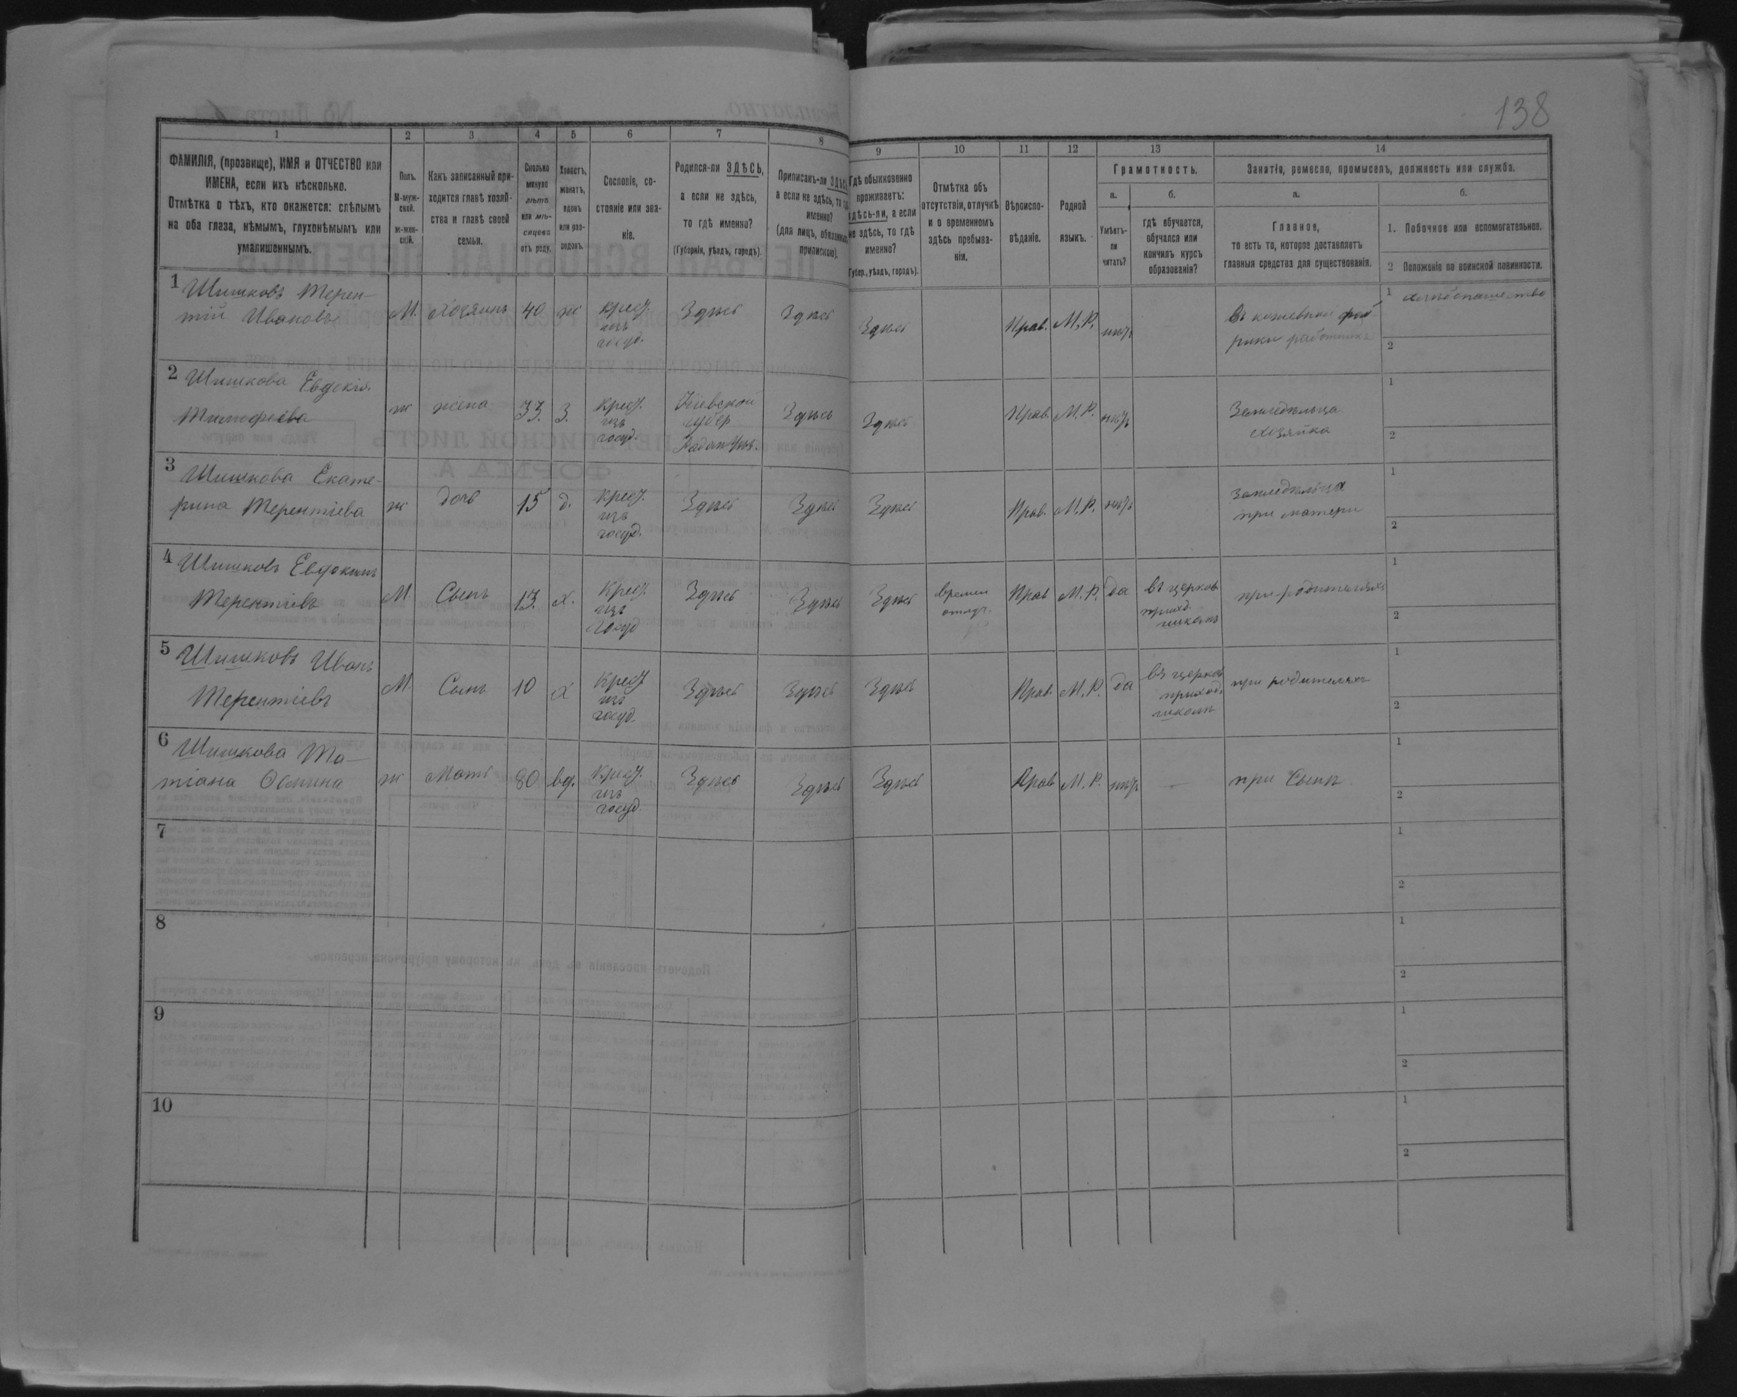 138
1 2 3 4 5 6 7 8 9 10 11 12 13 14
ФАМИЛІЯ, (прозвище), ИМЯ и ОТЧЕСТВО или
ИМЕНА, если ихъ нѣсколько.
Отмѣтка о тѣхъ, кто окажется: слѣпымъ
на оба глаза, нѣмымъ, глухонѣмымъ или
умалишеннымъ.
Полъ.
М-муж-
ской.
ж-жен-
скій.
Какъ записанный при-
ходится главѣ хозяй-
ства и главѣ своей
семьи.
Сколько
минуло
лѣтъ
или мѣ-
сяцевъ
отъ роду.
Холостъ,
женатъ,
вдовъ
или раз-
веденъ.
Сословіе, со-
стояніе или зва-
ніе.
Родился-ли ЗДѢСЬ,
а если не здѣсь,
то гдѣ именно?
(Губернія, уѣздъ, городъ).
Приписанъ-ли ЗДѢСЬ,
а если не здѣсь, то гдѣ
именно?
(для лицъ, обязанныхъ
припискою).
Гдѣ обыкновенно
проживаетъ:
здѣсь-ли, а если
не здѣсь, то гдѣ
именно?
(Губер., уѣздъ, городъ).
Отмѣтка объ
отсутствіи, отлучкѣ
и о временномъ
здѣсь пребыва-
ніи.
Вѣроиспо-
вѣданіе.
Родной
языкъ.
Грамотность.
а.
Умѣетъ-
ли
читать?
б.
гдѣ обучается,
обучался или
кончилъ курсъ
образованія?
Занятіе, ремесло, промыселъ, должность или служба.
а.
Главное,
то есть то, которое доставляетъ
главныя средства для существованія.
б.
1. Побочное или вспомогательное.
2 Положеніе по воинской повинности.
1 Шишковъ Терен-
тій Ивановъ М Хозяинъ 40 ж крест. изъ госуд. Здѣсь Здѣсь Здѣсь Прав. М.Р. нѣтъ Въ кожевной фаб-
рики работникъ 1 хлѣбопашество
2
2 Шишкова Евдокія
Тимофеева ж жена 33. З. крест. изъ госуд. Кіевской губер Здѣсь Здѣсь Прав. М.Р. нѣтъ Земледѣльца
хозяйка 1
2
3 Шишкова Екате-
рина Терентіева ж дочь 15 д. крест. изъ госуд. Здѣсь Здѣсь Здѣсь Прав. М.Р. нѣтъ Земледѣльца
при матери 1
2
4 Шишковъ Евдокимъ
Терентіевъ М Сынъ 13. х. крест. изъ госуд Здѣсь Здѣсь Здѣсь времен отлуч. Прав М.Р. да въ церков приход. школѣ при родителяхъ 1
2
5 Шишковъ Иванъ
Терентіевъ М Сынъ 10 х крест изъ госуд. Здѣсь Здѣсь Здѣсь Прав. М.Р. да въ церков приход. школѣ при родителяхъ 1
2
6 Шишкова Та-
тіана Осипина ж Мать 80 вд. крест. изъ госуд Здѣсь Здѣсь Здѣсь Прав М.Р. нѣтъ — при Сынѣ 1
2
7 1
2
8 1
2
9 1
2
10 1
2